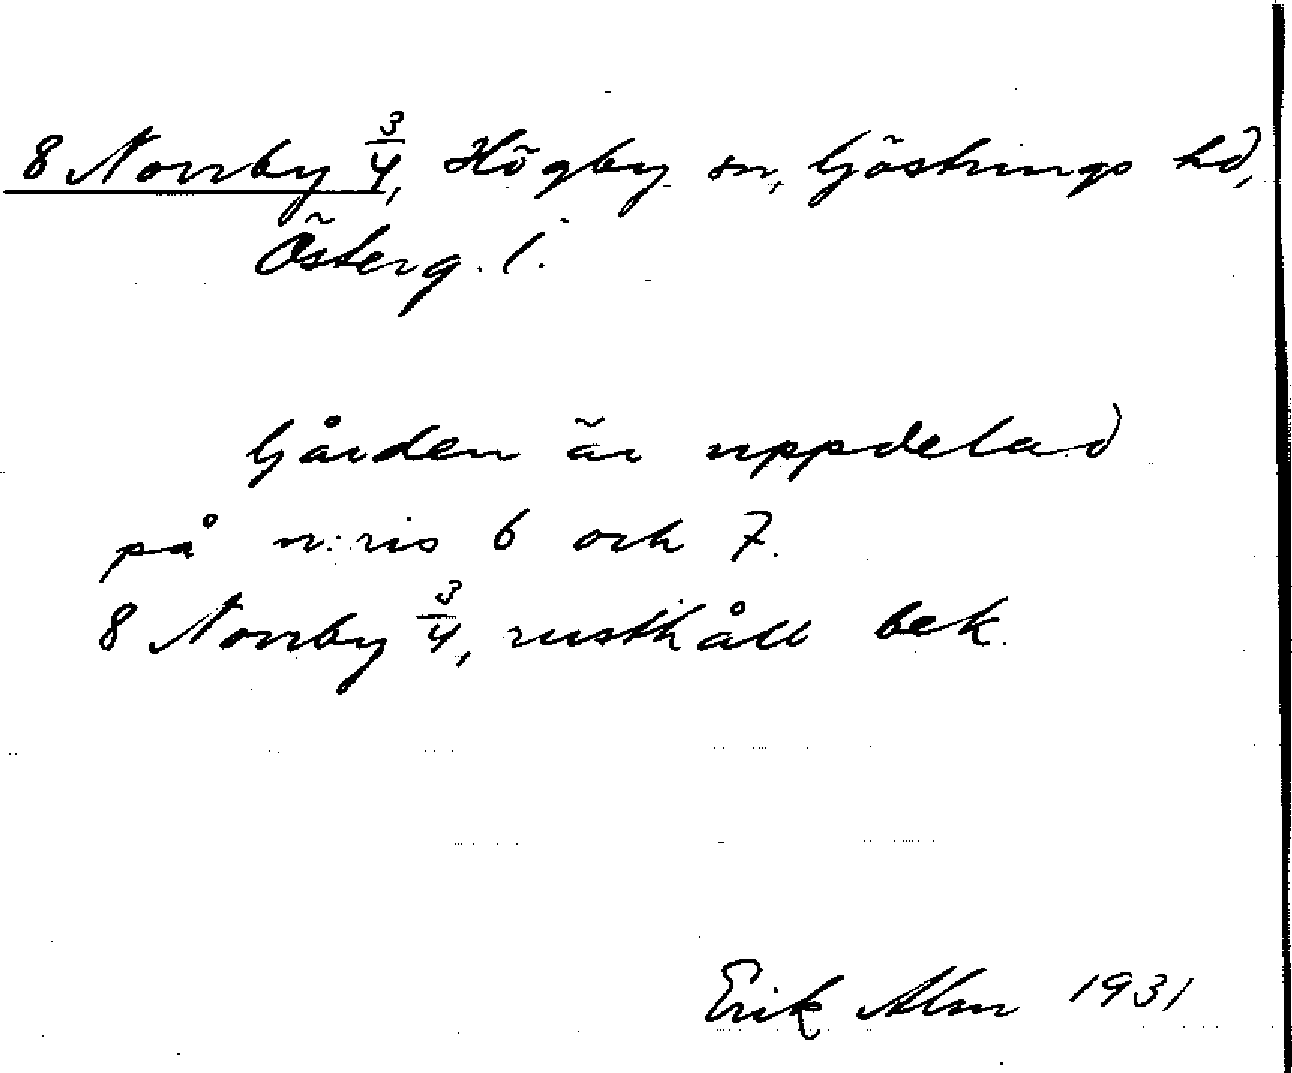 8 Norrby 3/4, Högby sn, Göstrings hd,
Österg. l.
Gården är uppdelad
på n:ris 6 och 7.
8 Norrby 3/4, rusthåll bek.
Erik Alm 1931